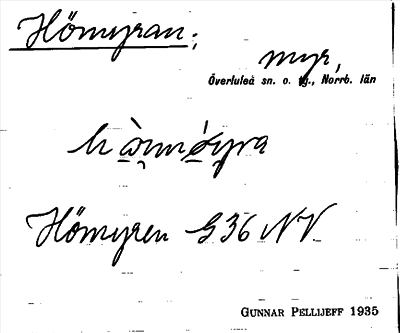 Hömyran;
myr,
Överluleå sn. o. tg., Norrb. län
Hömyren G 36 NV
GUNNAR PELLIJEFF 1935